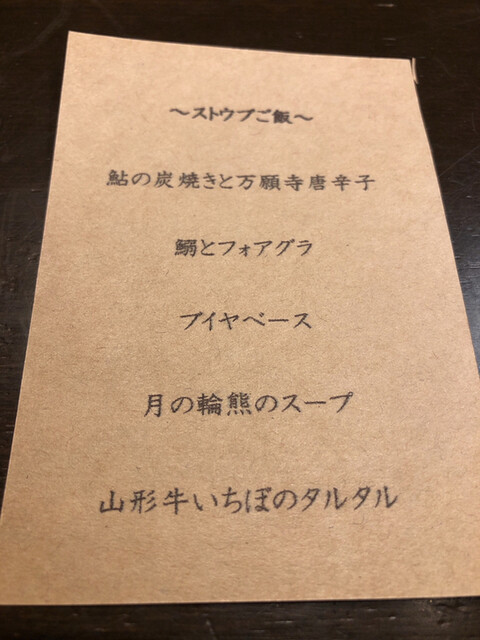 ～ストウブご飯～
鮎の炭焼きと万願寺唐辛子
鰯とフォアグラ
ブイヤベース
月の輪熊のスープ
山形牛いちぼのタルタル